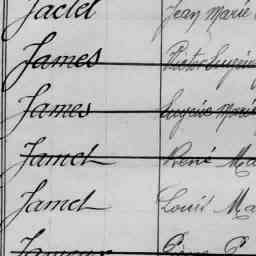 Jaclet Jean Marie
James Victor Eugène
James Eugène Marie
Jamet René Ma
Jamet Louis Ma